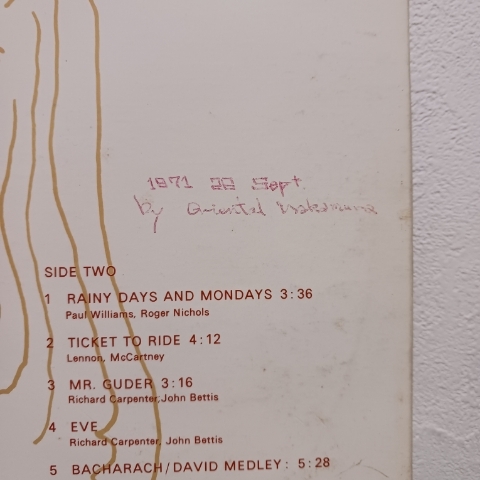 1971 22 Sept.
By Oriental
SIDE TWO
1 RAINY DAYS AND MONDAYS 3:36
Paul Williams, Roger Nichols
2 TICKET TO RIDE 4:12
Lennon, McCartney
3 MR. GUDER 3:16
Richard Carpenter, John Bettis
4 EVE
Richard Carpenter, John Bettis
5 BACHARACH/DAVID MEDLEY: 5:28